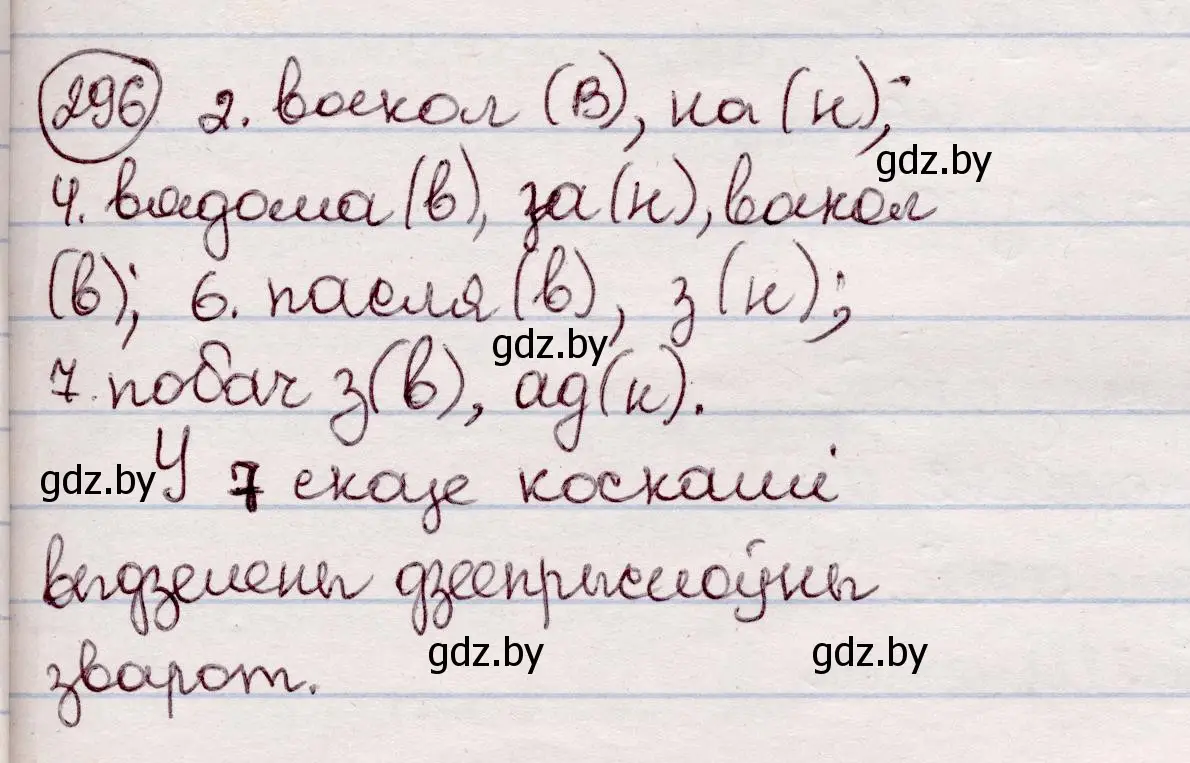 296 2. воскол (в), на (н);
gdz.by
4. вядома (в), за (н), вакол
(в); 6. пасля (в), з (н);
gdz.by
7. побач з (в), ад (н).
gdz.by У 7 сказе коскамі
выдзелены дзеепрыслоўны
gdz.by gdz.by
зварот.